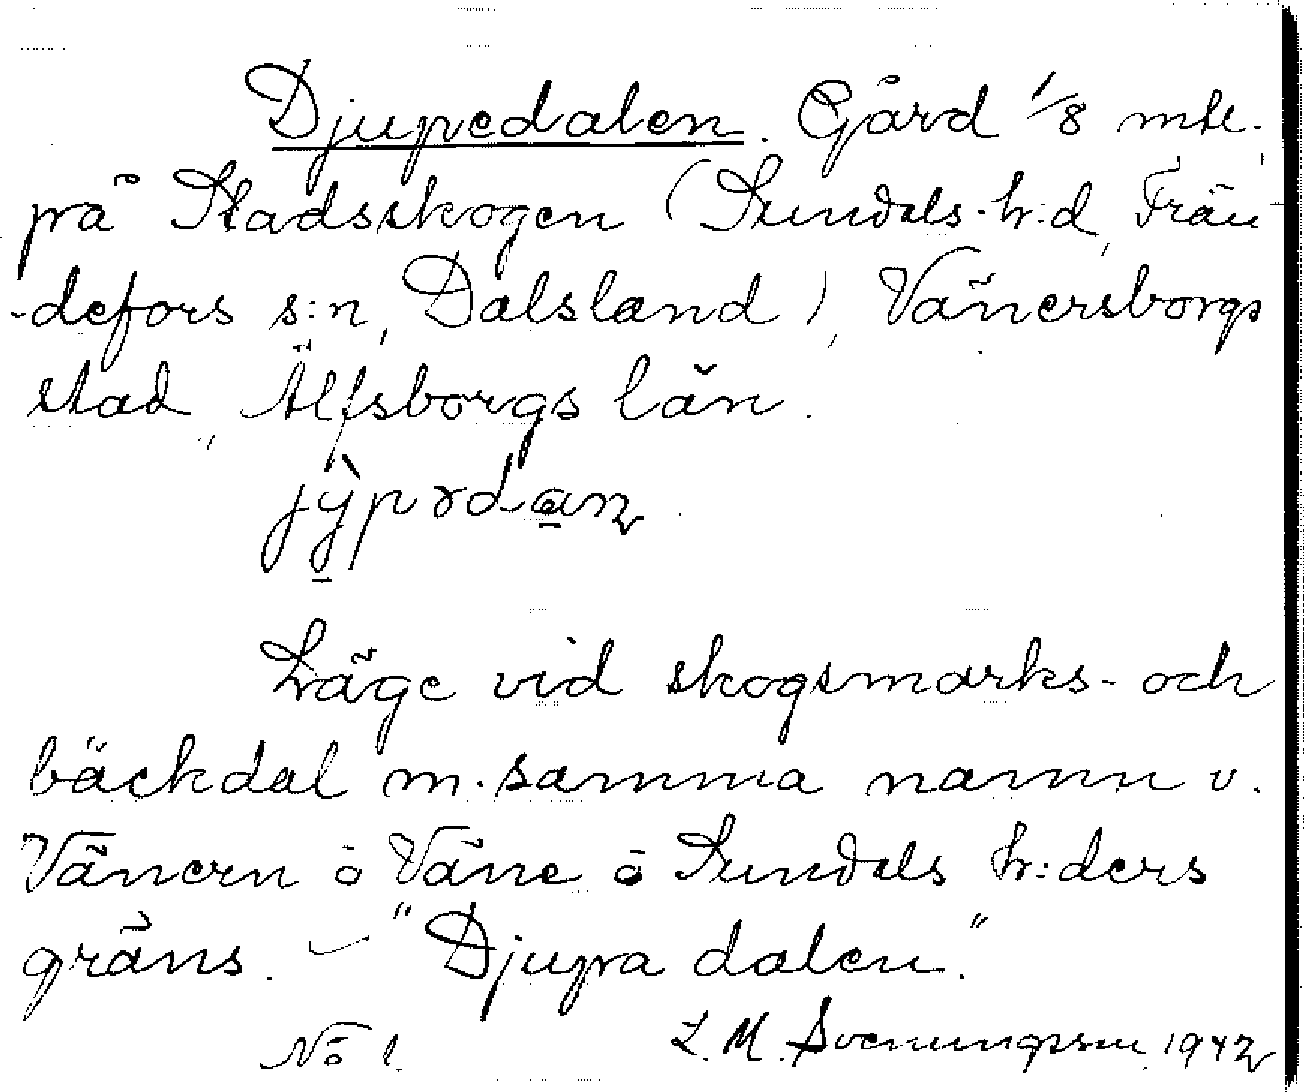 Djupedalen. Gård 1/8 mtl.
på Stadsskogen (Sundals-h:d, Frän
-defors s:n, Dalsland), Vänersborgs
stad, Älfsborgs län.
Läge vid skogsmarks- och
bäckdal m. samma namn v.
Vänern o Väne o Sundals h:ders
gräns. – "Djupa dalen."
No 1. L. M. Svenungsson 1942